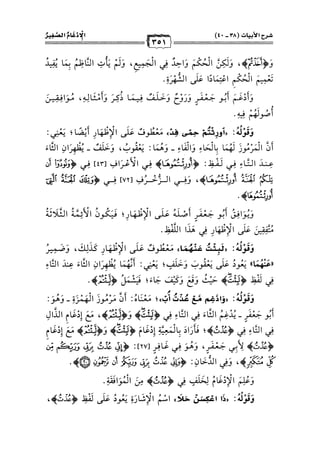 شرح الأبيات (٣٨ - ٤٠)
٣٥١
الإدغام الصغير
وَلَكِنَّ الْحُكْمَ وَاحِدٌ فِي الْجَمِيعِ، وَلَمْ يَأْتِ النَّاظِمُ بِمَا يُفِيدُ
تَعْمِيمَ الْحُكْمِ اعْتِمَادًا عَلَى الشُّهْرَةِ.
وَأَدْغَمَ أَبُو جَعْفَرٍ وَرَوْحٌ وَخَلَفٌ فِيمَا ذُكِرَ وَأَمْثَالِهِ، مُوَافِقِينَ
أُصُولَهُمْ فِيهِ.
مَعْطُوفٌ عَلَى الْإِظْهَارِ أَيْضًا؛ يَعْنِي:
أَنَّ الْمَرْمُوزَ لَهُمَا بِالْحَاءِ وَالْفَاءِ - وَهُمَا: يَعْقُوبُ، وَخَلَفٌ - يُظْهِرَانِ الثَّاءَ
عِنْدَ التَّاءِ فِي لَفْظِ: ﴿أُورِثْتُمُوهَا﴾ فِي الْأَعْرَافِ [٤٣]
وَفِي الزُّخْرُفِ [٧٢]
وَيُوَافِقُ أَبُو جَعْفَرٍ أَصْلَهُ عَلَى الْإِظْهَارِ؛ فَيَكُونُ الْأَئِمَّةُ الثَّلَاثَةُ
مُتَّفِقِينَ عَلَى الْإِظْهَارِ فِي هَذَا اللَّفْظِ.
وَقَوْلُهُ: «لَبِثْتُ عَنْهُمَا»، مَعْطُوفٌ عَلَى الْإِظْهَارِ كَذَلِكَ، وَضَمِيرُ
«عَنْهُمَا» يَعُودُ عَلَى يَعْقُوبَ وَخَلَفٍ؛ يَعْنِي: أَنَّهُمَا يُظْهِرَانِ الثَّاءَ عِنْدَ التَّاءِ
فِي لَفْظِ ﴿لَبِثْتَ﴾ حَيْثُ وَقَعَ وَكَيْفَ جَاءَ؛ فَيَشْمَلُ
وَقَوْلُهُ: مَعْنَاهُ: أَنَّ مَرْمُوزَ الْهَمْزَةِ - وَهُوَ:
أَبُو جَعْفَرٍ - يُدْغِمُ الثَّاءَ فِي التَّاءِ فِي ﴿لَبِثْتَ﴾ مَعَ إِدْغَامِ الذَّالِ
فِي التَّاءِ فِي ﴿عُذْتُ﴾؛ فَأَرَادَ بِالْمَعِيَّةِ إِدْغَامَ ﴿لَبِثْتَ﴾ مَعَ إِدْغَامِ
﴿عُذْتُ﴾ لِأَبِي جَعْفَرٍ، وَهُوَ فِي غَافِرٍ [٢٧]: ﴿إِنِّي عُذْتُ بِرَبِّي وَرَبِّكُمْ مِنْ
كُلِّ مُتَكَبِّرٍ﴾ وَفِي الدُّخَانِ: ﴿وَإِنِّي عُذْتُ بِرَبِّي وَرَبِّكُمْ أَنْ تَرْجُمُونِ﴾.
وَعُلِمَ الْإِدْغَامُ لِخَلَفٍ فِي ﴿عُذْتُ﴾ مِنَ الْمُوَافَقَةِ.
اسْمُ الْإِشَارَةِ يَعُودُ عَلَى لَفْظِ ﴿عُذْتُ﴾،